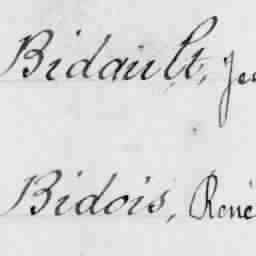 Bidault, Je
Bidois, René